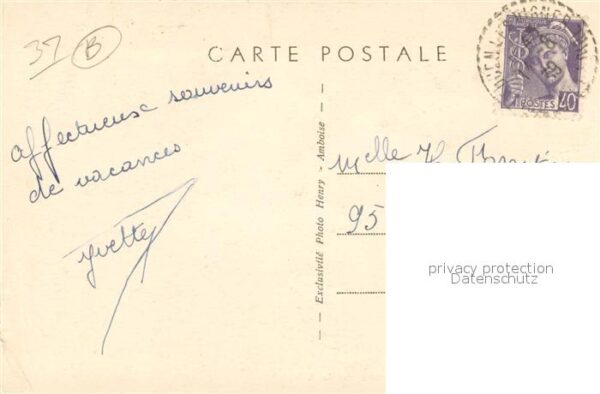 37 B
CARTE POSTALE
POSTES 40
affectueux souvenirs
de vacances
Yvette
Exclusivité Photo Henry - Amboise
Melle
95
privacy protection
Datenschutz